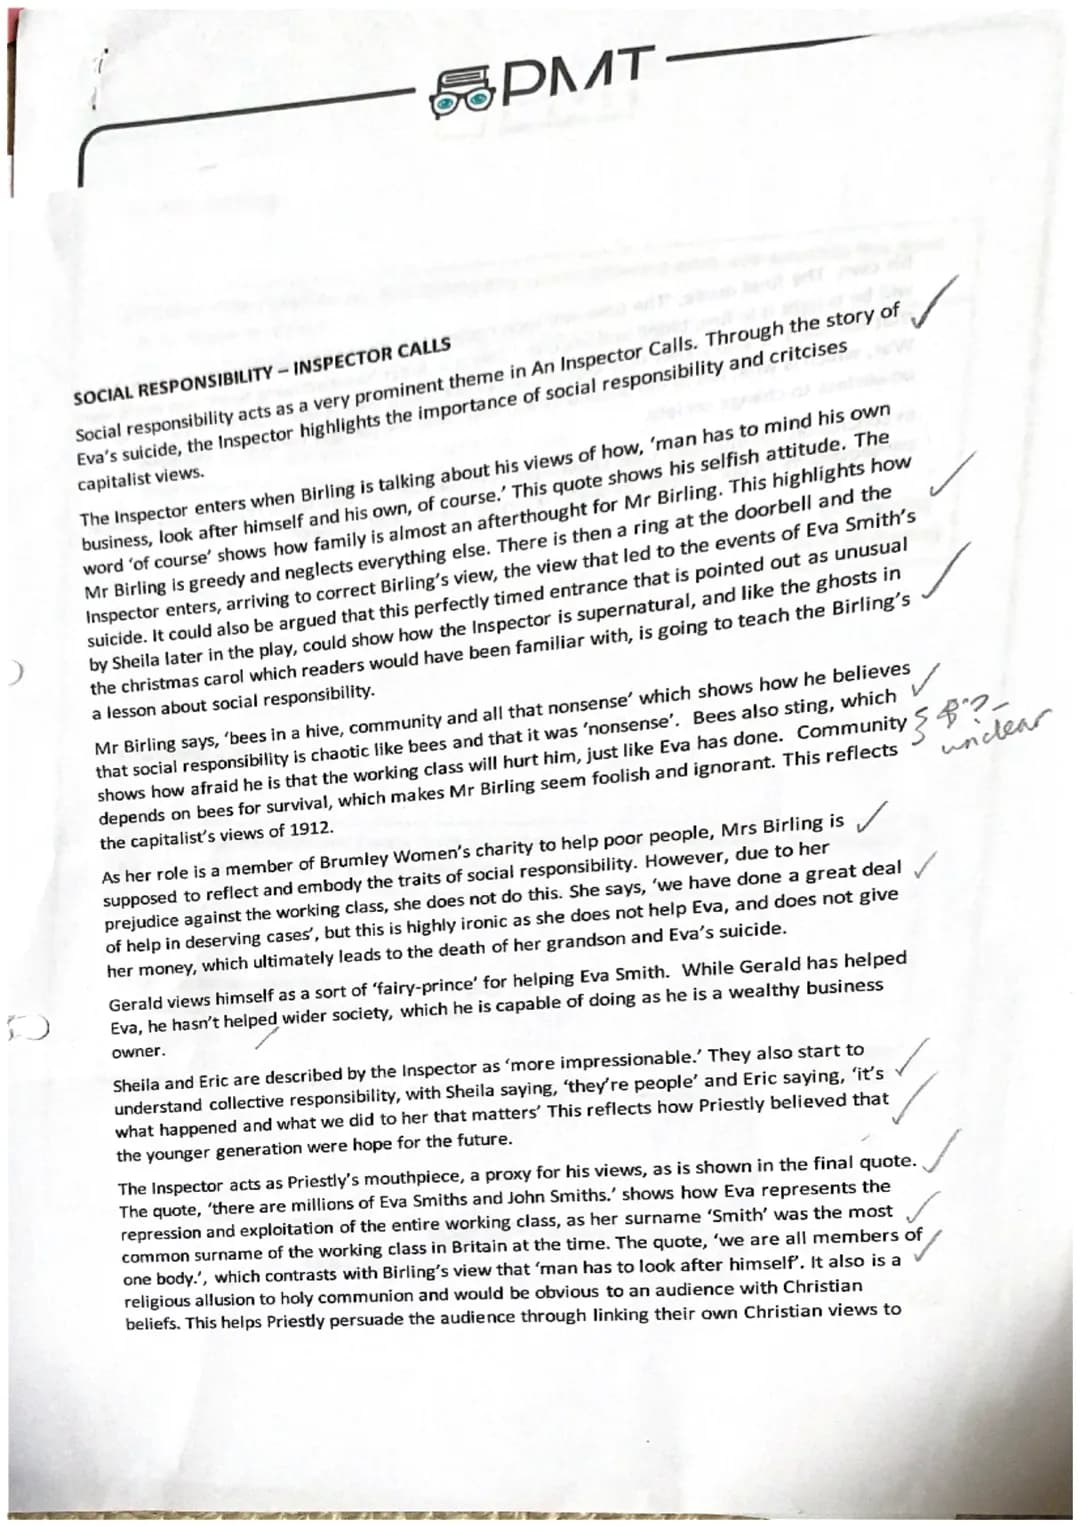 PMT
SOCIAL RESPONSIBILITY – INSPECTOR CALLS
Social responsibility acts as a very prominent theme in An Inspector Calls. Through the story of
Eva's suicide, the Inspector highlights the importance of social responsibility and critcises
capitalist views.
The Inspector enters when Birling is talking about his views of how, 'man has to mind his own
business, look after himself and his own, of course.' This quote shows his selfish attitude. The
word 'of course' shows how family is almost an afterthought for Mr Birling. This highlights how
Mr Birling is greedy and neglects everything else. There is then a ring at the doorbell and the
Inspector enters, arriving to correct Birling's view, the view that led to the events of Eva Smith's
suicide. It could also be argued that this perfectly timed entrance that is pointed out as unusual
by Sheila later in the play, could show how the Inspector is supernatural, and like the ghosts in
the christmas carol which readers would have been familiar with, is going to teach the Birling's
a lesson about social responsibility.
Mr Birling says, 'bees in a hive, community and all that nonsense' which shows how he believes
that social responsibility is chaotic like bees and that it was 'nonsense'. Bees also sting, which
shows how afraid he is that the working class will hurt him, just like Eva has done. Community
depends on bees for survival, which makes Mr Birling seem foolish and ignorant. This reflects
the capitalist's views of 1912.
unclear
As her role is a member of Brumley Women's charity to help poor people, Mrs Birling is
supposed to reflect and embody the traits of social responsibility. However, due to her
prejudice against the working class, she does not do this. She says, 'we have done a great deal
of help in deserving cases', but this is highly ironic as she does not help Eva, and does not give
her money, which ultimately leads to the death of her grandson and Eva's suicide.
Gerald views himself as a sort of 'fairy-prince' for helping Eva Smith. While Gerald has helped
Eva, he hasn't helped wider society, which he is capable of doing as he is a wealthy business
owner.
Sheila and Eric are described by the Inspector as 'more impressionable.' They also start to
understand collective responsibility, with Sheila saying, 'they're people' and Eric saying, 'it's
what happened and what we did to her that matters' This reflects how Priestly believed that
the younger generation were hope for the future.
The Inspector acts as Priestly's mouthpiece, a proxy for his views, as is shown in the final quote.
The quote, 'there are millions of Eva Smiths and John Smiths.' shows how Eva represents the
repression and exploitation of the entire working class, as her surname 'Smith' was the most
common surname of the working class in Britain at the time. The quote, 'we are all members of
one body.', which contrasts with Birling's view that 'man has to look after himself'. It also is a
religious allusion to holy communion and would be obvious to an audience with Christian
beliefs. This helps Priestly persuade the audience through linking their own Christian views to